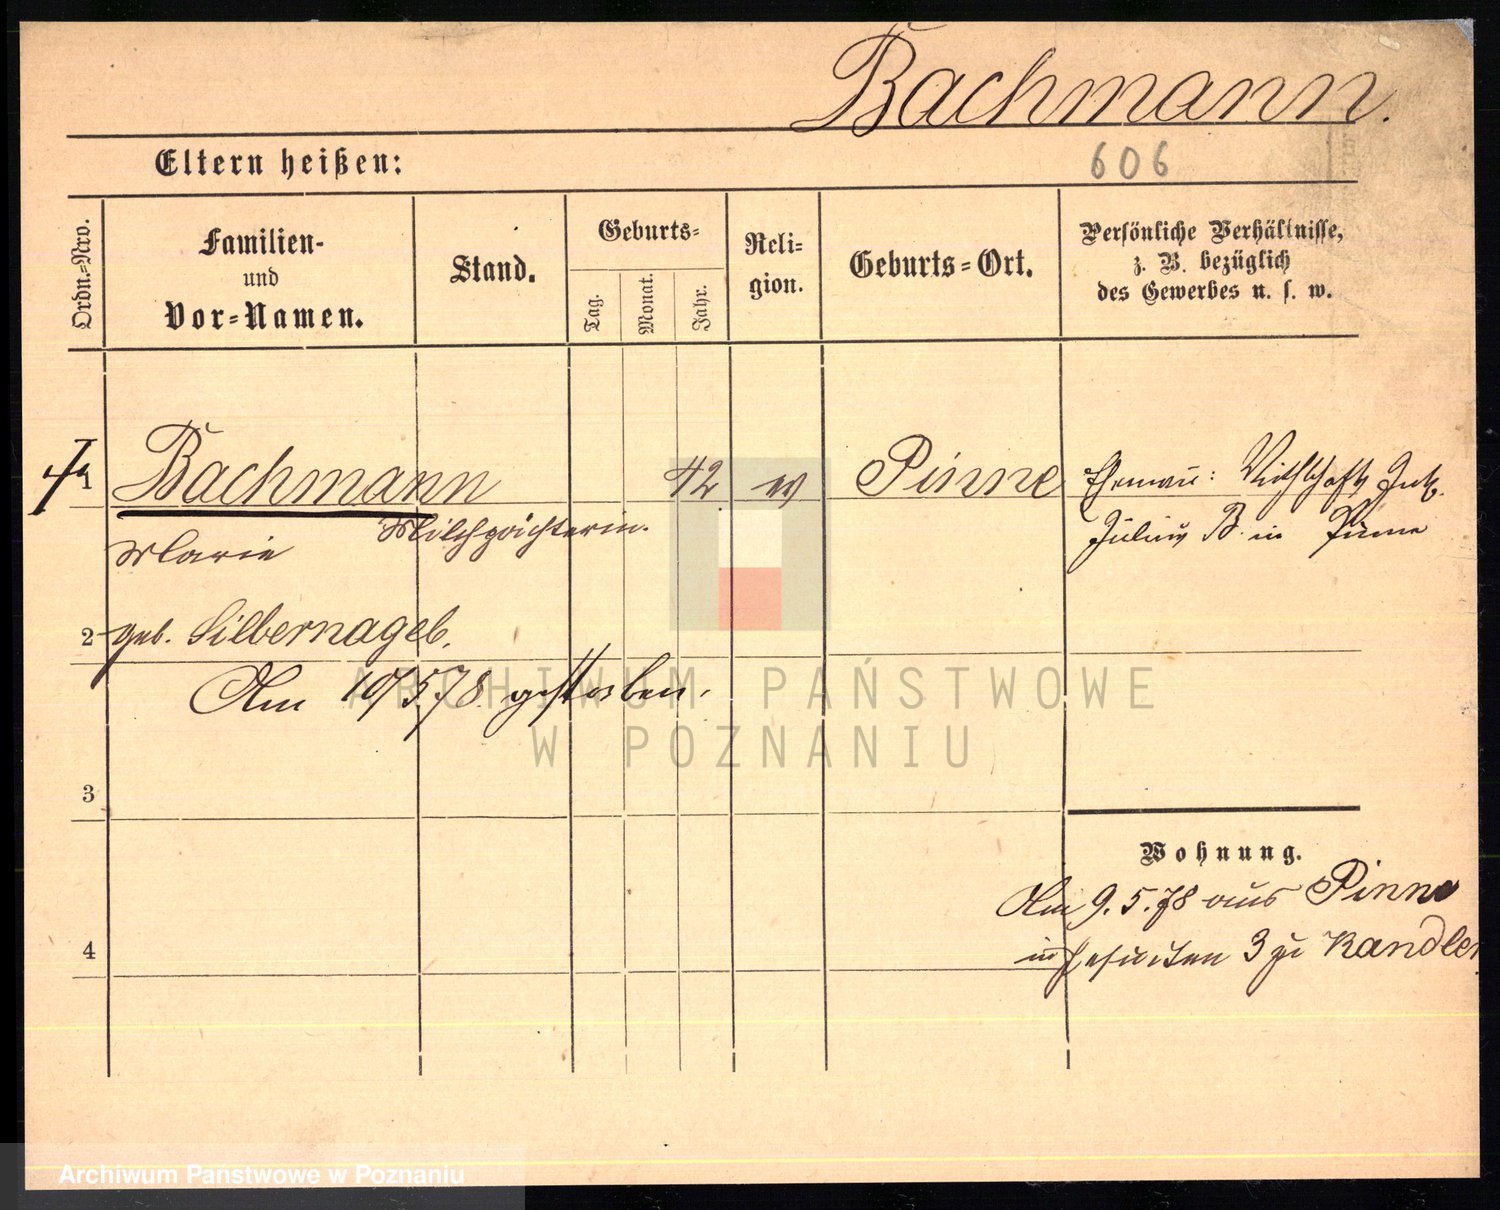 Bachmann.
Eltern heißen:
606
Ordn.=Nro.
Familien-
und
Vor=Namen.
Stand.
Geburts=
Tag.
Monat.
Jahr.
Reli=
gion.
Geburts=Ort.
Persönliche Verhältnisse,
z. B. bezüglich
des Gewerbes u. s. w.
1
Bachmann
42
ev
Pinne
Ehemann: Wirthschafts
Julius B. in Pinne
Marie
Milchpächterin.
2
geb. Silbernagel.
Am 10/5.78. gestorben.
ARCHIWUM PAŃSTWOWE
W POZNANIU
3
Wohnung.
Am 9.5.78 aus Pinne
in Jesuiten 3 zu Kandler
4
Archiwum Państwowe w Poznaniu